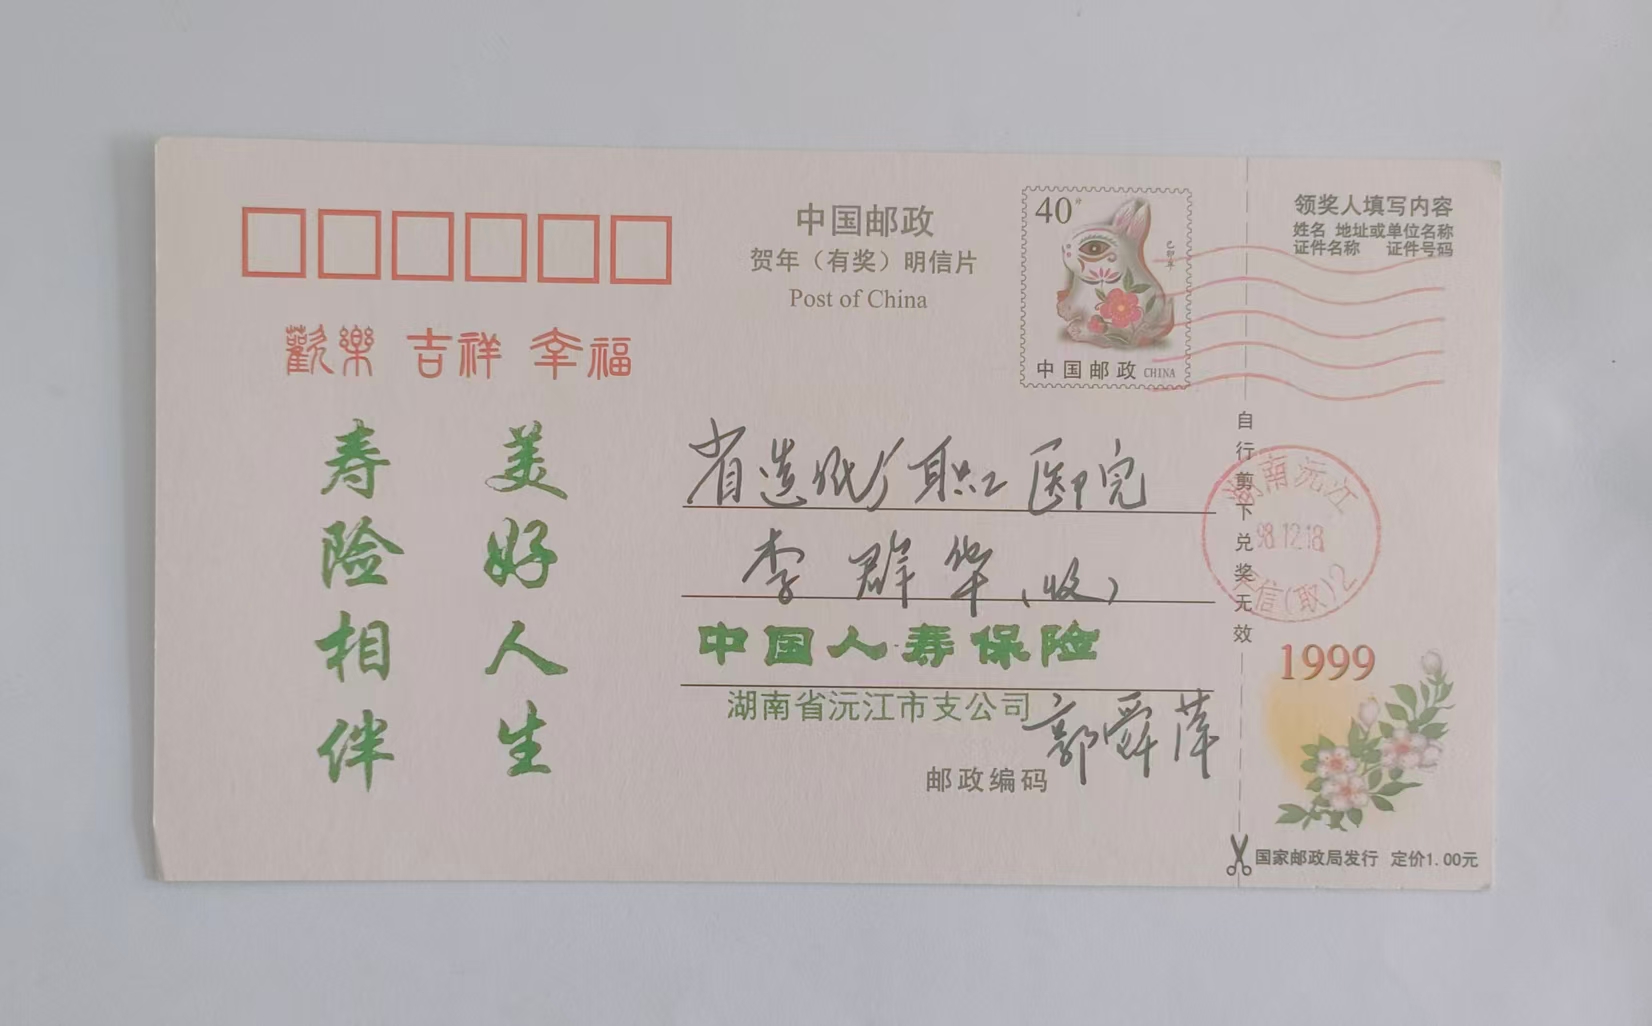 中国邮政
贺年（有奖）明信片
Post of China
40
己卯年
中国邮政 CHINA
领奖人填写内容
姓名 地址或单位名称
证件名称 证件号码
歡樂 吉祥 幸福
美好人生
寿险相伴
省造纸厂职工医院
李群华（收）
中国人寿保险
湖南省沅江市支公司 郭舜萍
邮政编码
自行剪下兑奖无效
湖南沅江
98.12.18
信(取)2
1999
国家邮政局发行 定价1.00元